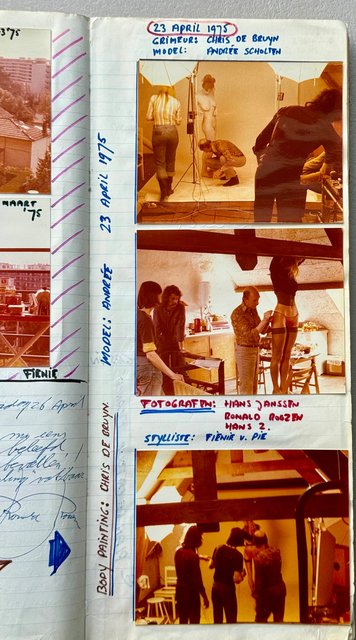 3'75
MAART
'75
FIENIE
26 April
23 APRIL 1975
GRIMEUR: CHRIS DE BRUYN
MODEL: ANDRÉE SCHOLTEN
MODEL: ANDRÉE 23 APRIL 1975
BODY PAINTING: CHRIS DE BRUYN.
FOTOGRAFEN: HANS JANSSEN
RONALD ROOZEN
HANS Z.
STYLISTE: FIENIE V. PIE